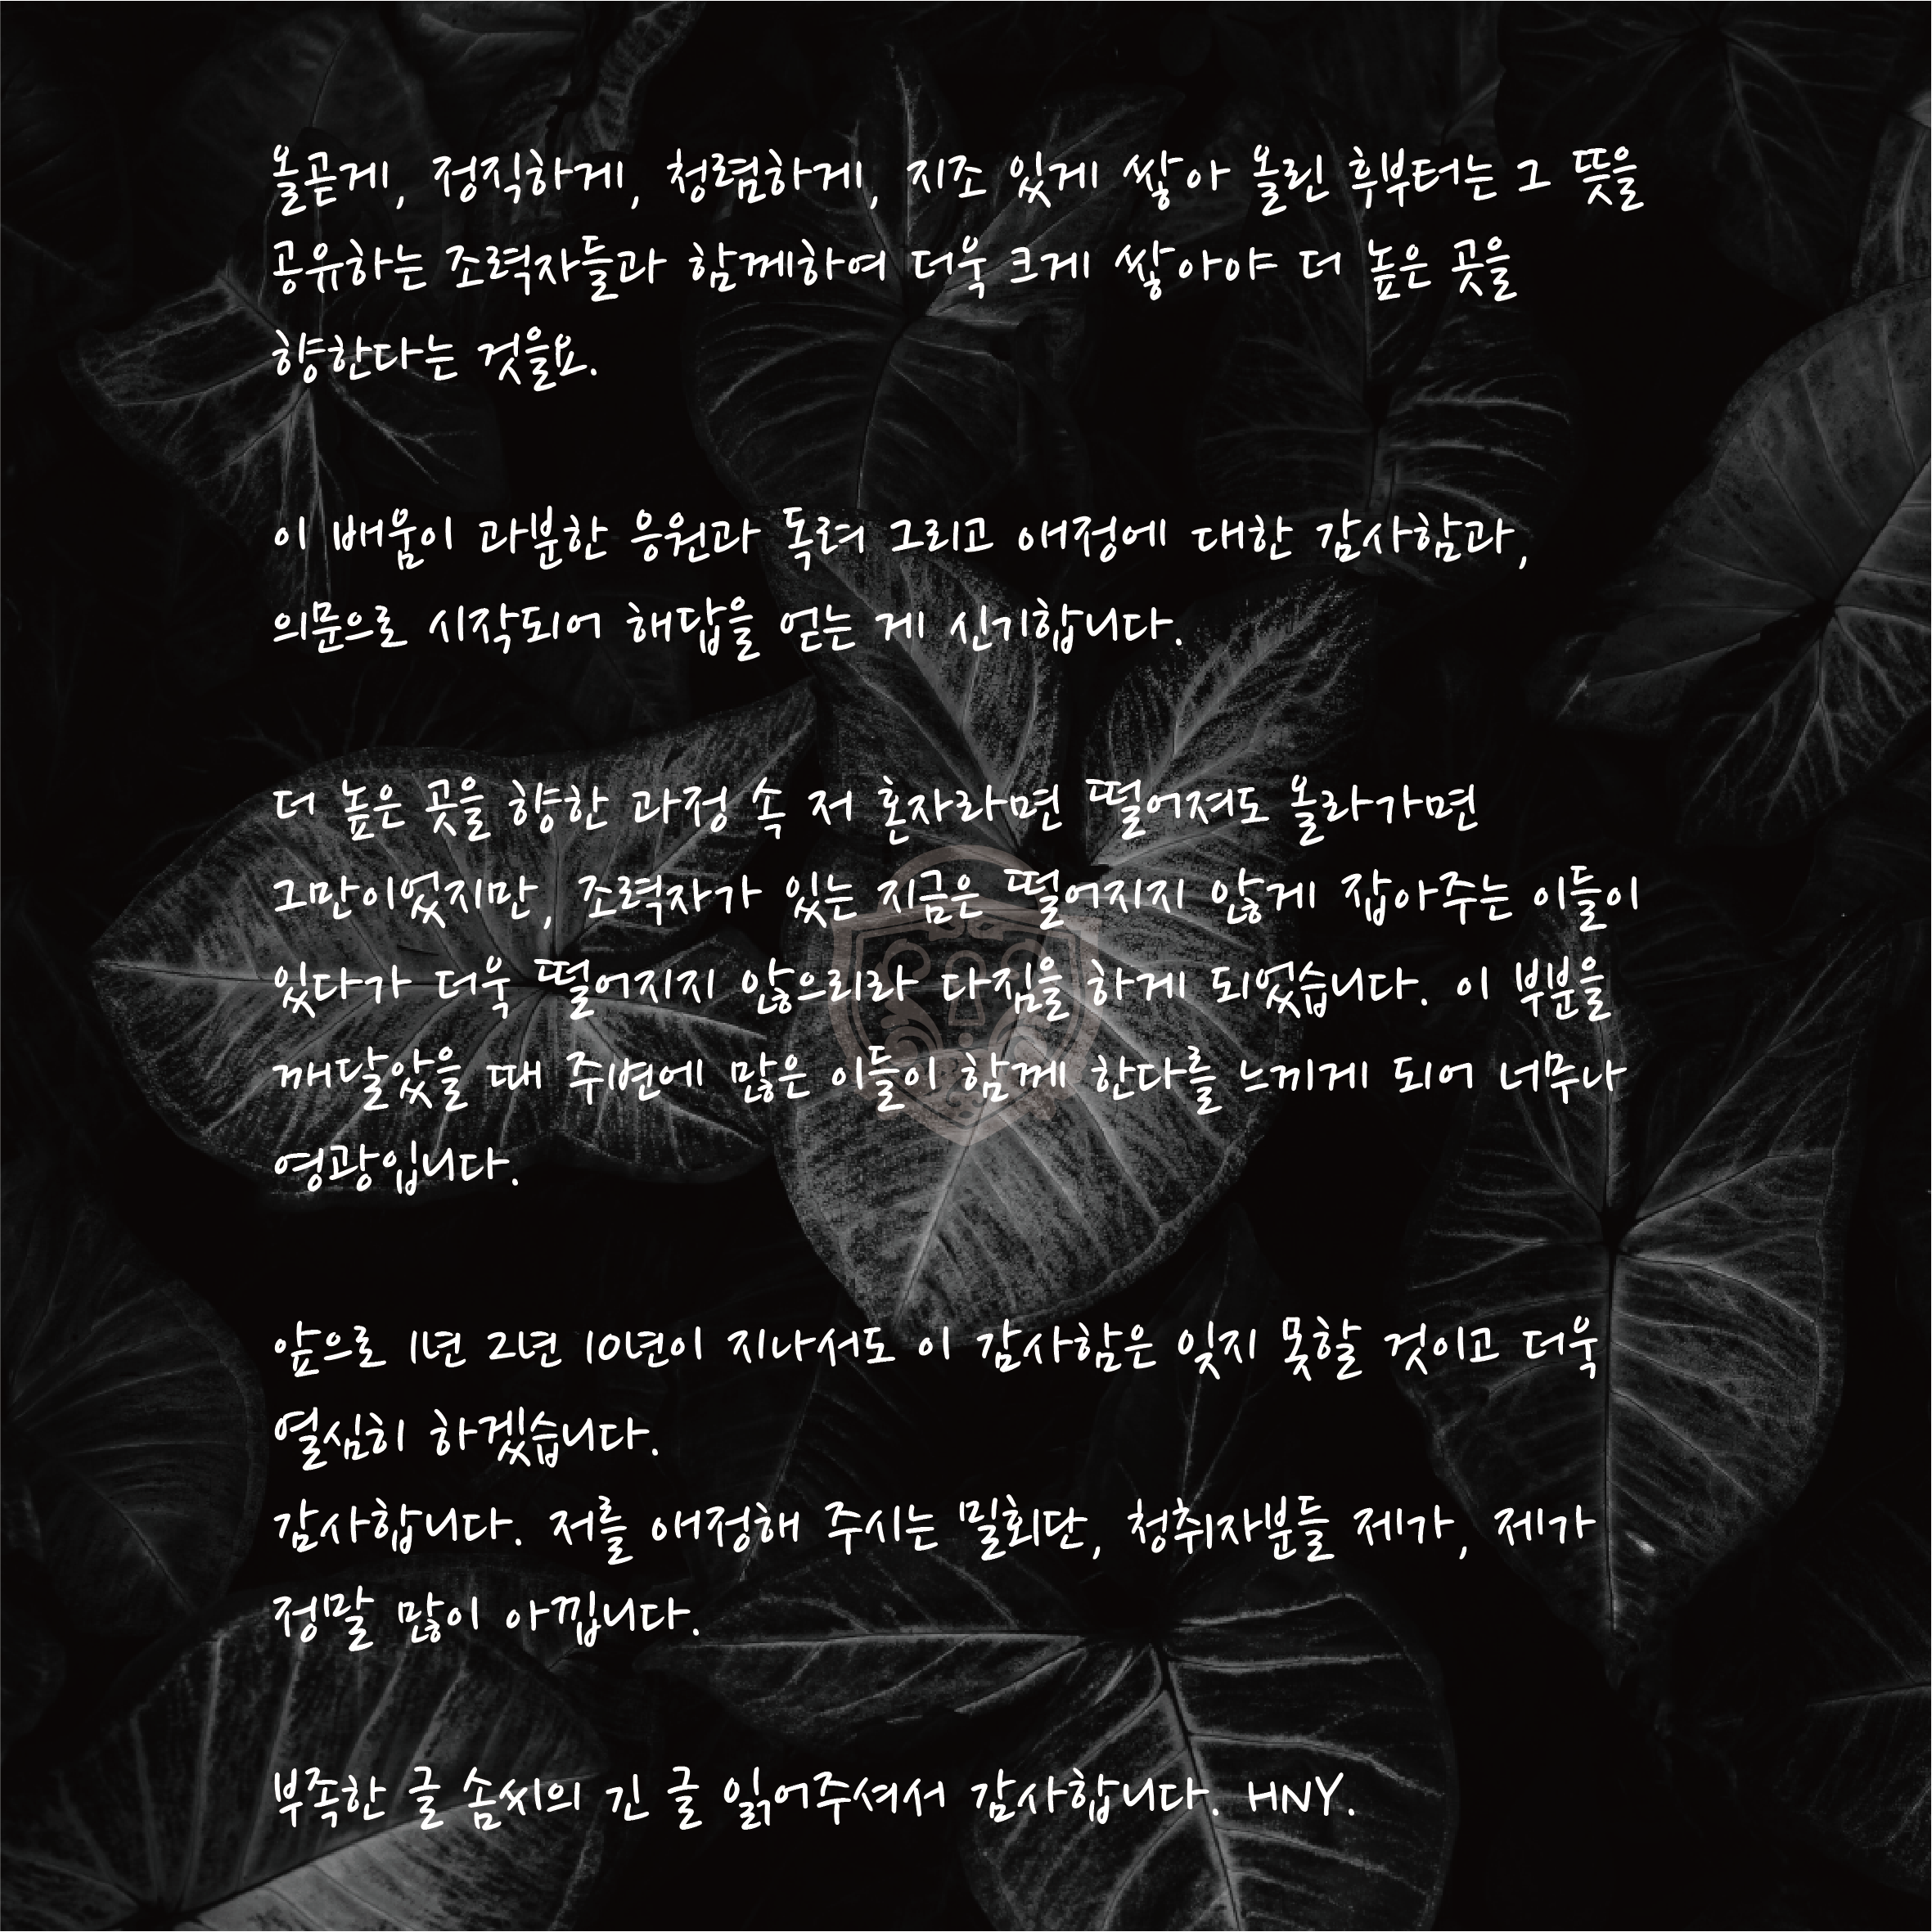 올곧게, 정직하게, 청렴하게, 지조 있게 쌓아 올린 후부터는 그 뜻을
공유하는 조력자들과 함께하여 더욱 크게 쌓아야 더 높은 곳을
향한다는 것을요.
이 배움이 과분한 응원과 독려 그리고 애정에 대한 감사함과,
의문으로 시작되어 해답을 얻는 게 신기합니다.
더 높은 곳을 향한 과정 속 저 혼자라면 떨어져도 올라가면
그만이었지만, 조력자가 있는 지금은 떨어지지 않게 잡아주는 이들이
있다가 더욱 떨어지지 않으리라 다짐을 하게 되었습니다. 이 부분을
깨달았을 때 주변에 많은 이들이 함께 한다를 느끼게 되어 너무나
영광입니다.
앞으로 1년 2년 10년이 지나서도 이 감사함은 잊지 못할 것이고 더욱
열심히 하겠습니다.
감사합니다. 저를 애정해 주시는 밀회단, 청취자분들 제가, 제가
정말 많이 아낍니다.
부족한 글 솜씨의 긴 글 읽어주셔서 감사합니다. HNY.